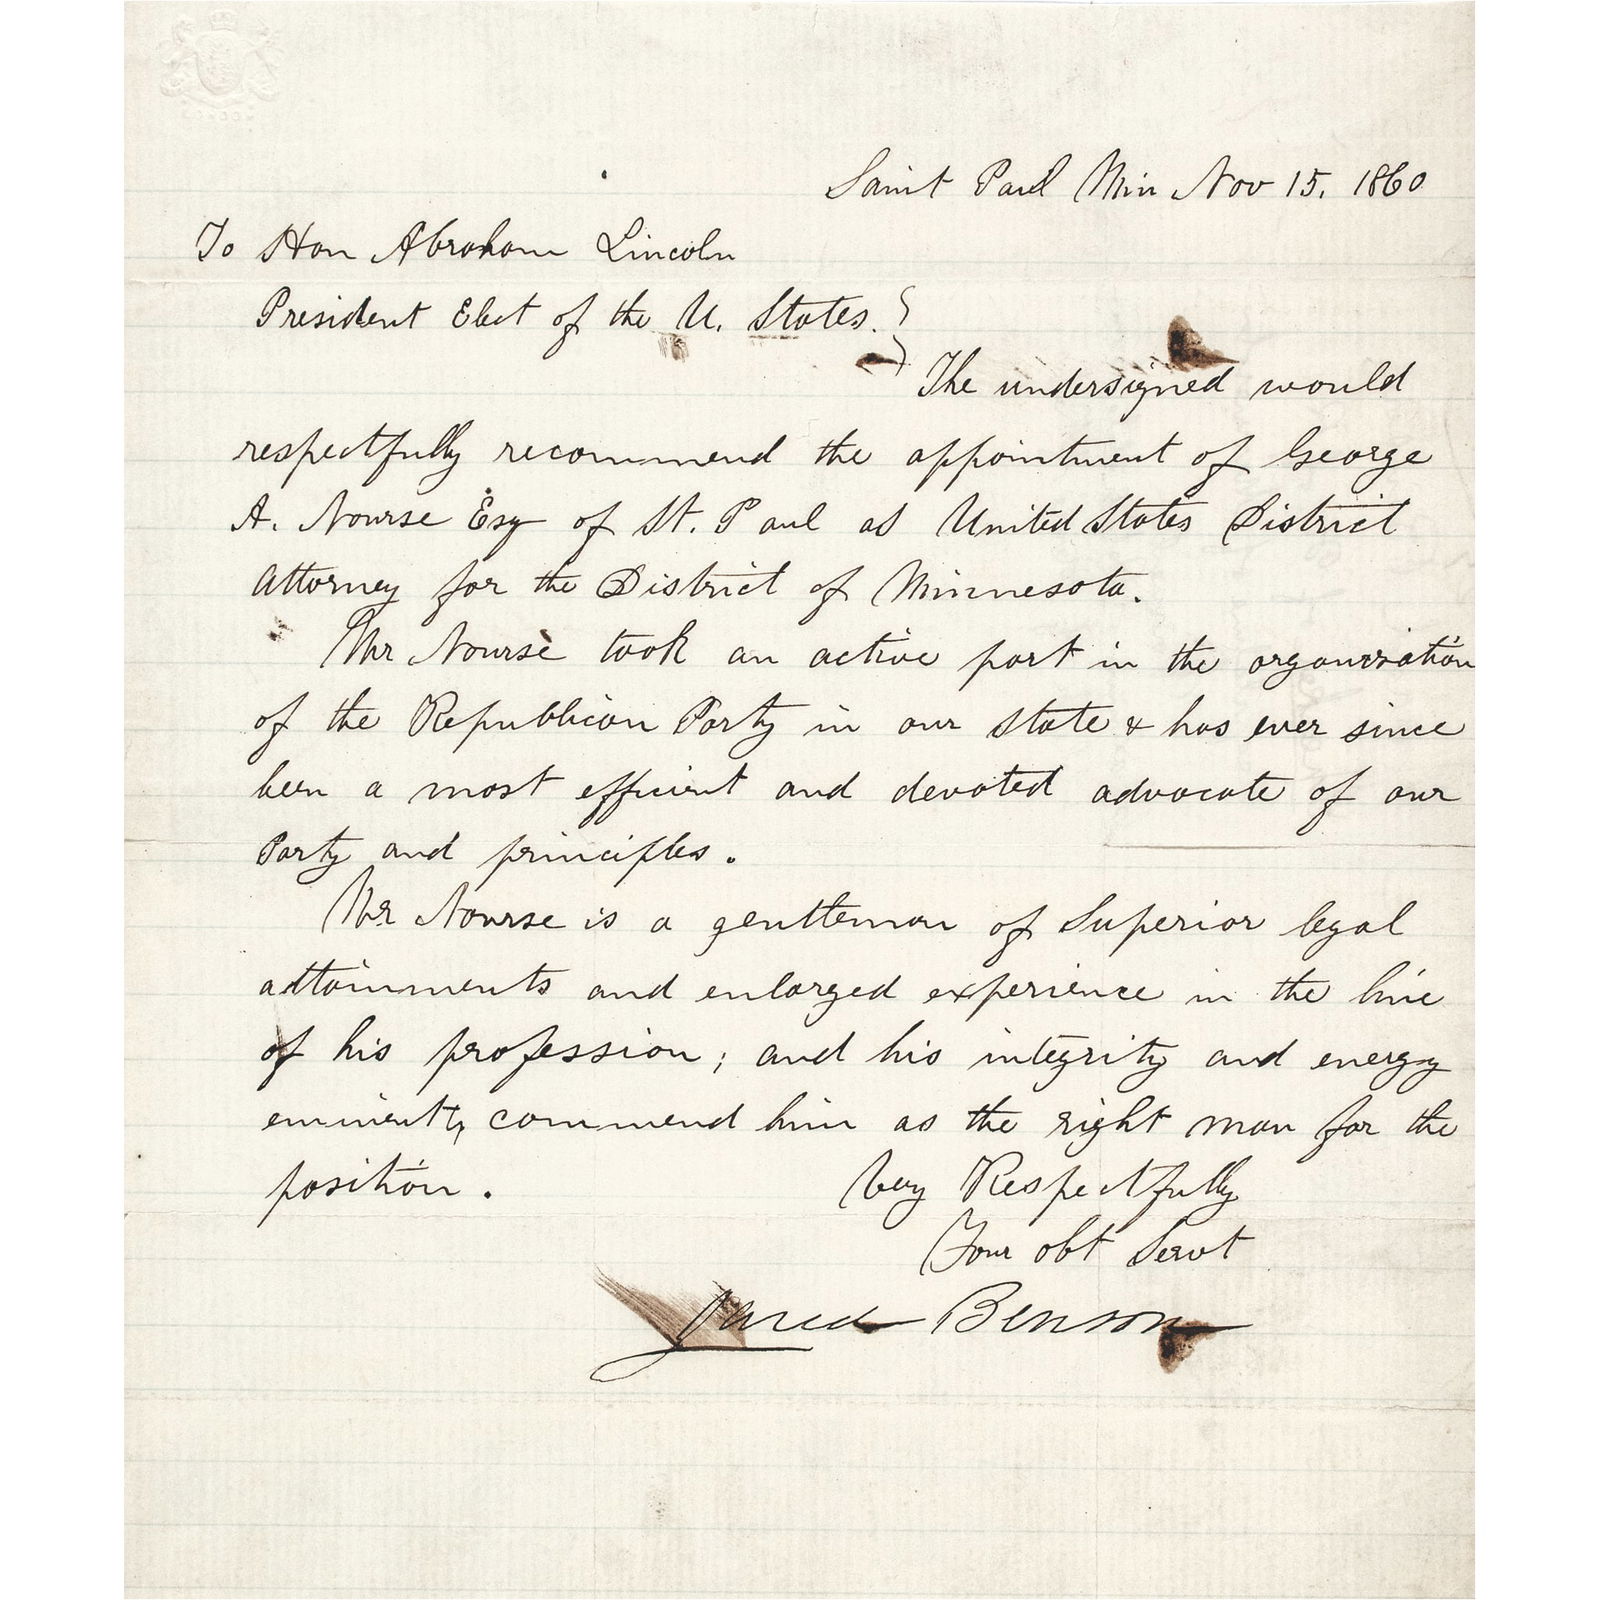 Saint Paul Min Nov 15. 1860
To Hon Abraham Lincoln
President Elect of the U. States.
The undersigned would
respectfully recommend the appointment of George
A. Nourse Esq of St. Paul as United States District
Attorney for the District of Minnesota.
Mr Nourse took an active part in the organisation
of the Republican Party in our State & has ever since
been a most efficient and devoted advocate of our
Party and principles.
Mr Nourse is a gentleman of Superior legal
attainments and enlarged experience in the line
of his profession; and his integrity and energy
eminently commend him as the right man for the
position.
Very Respectfully
Your obt Servt
Jared Benson